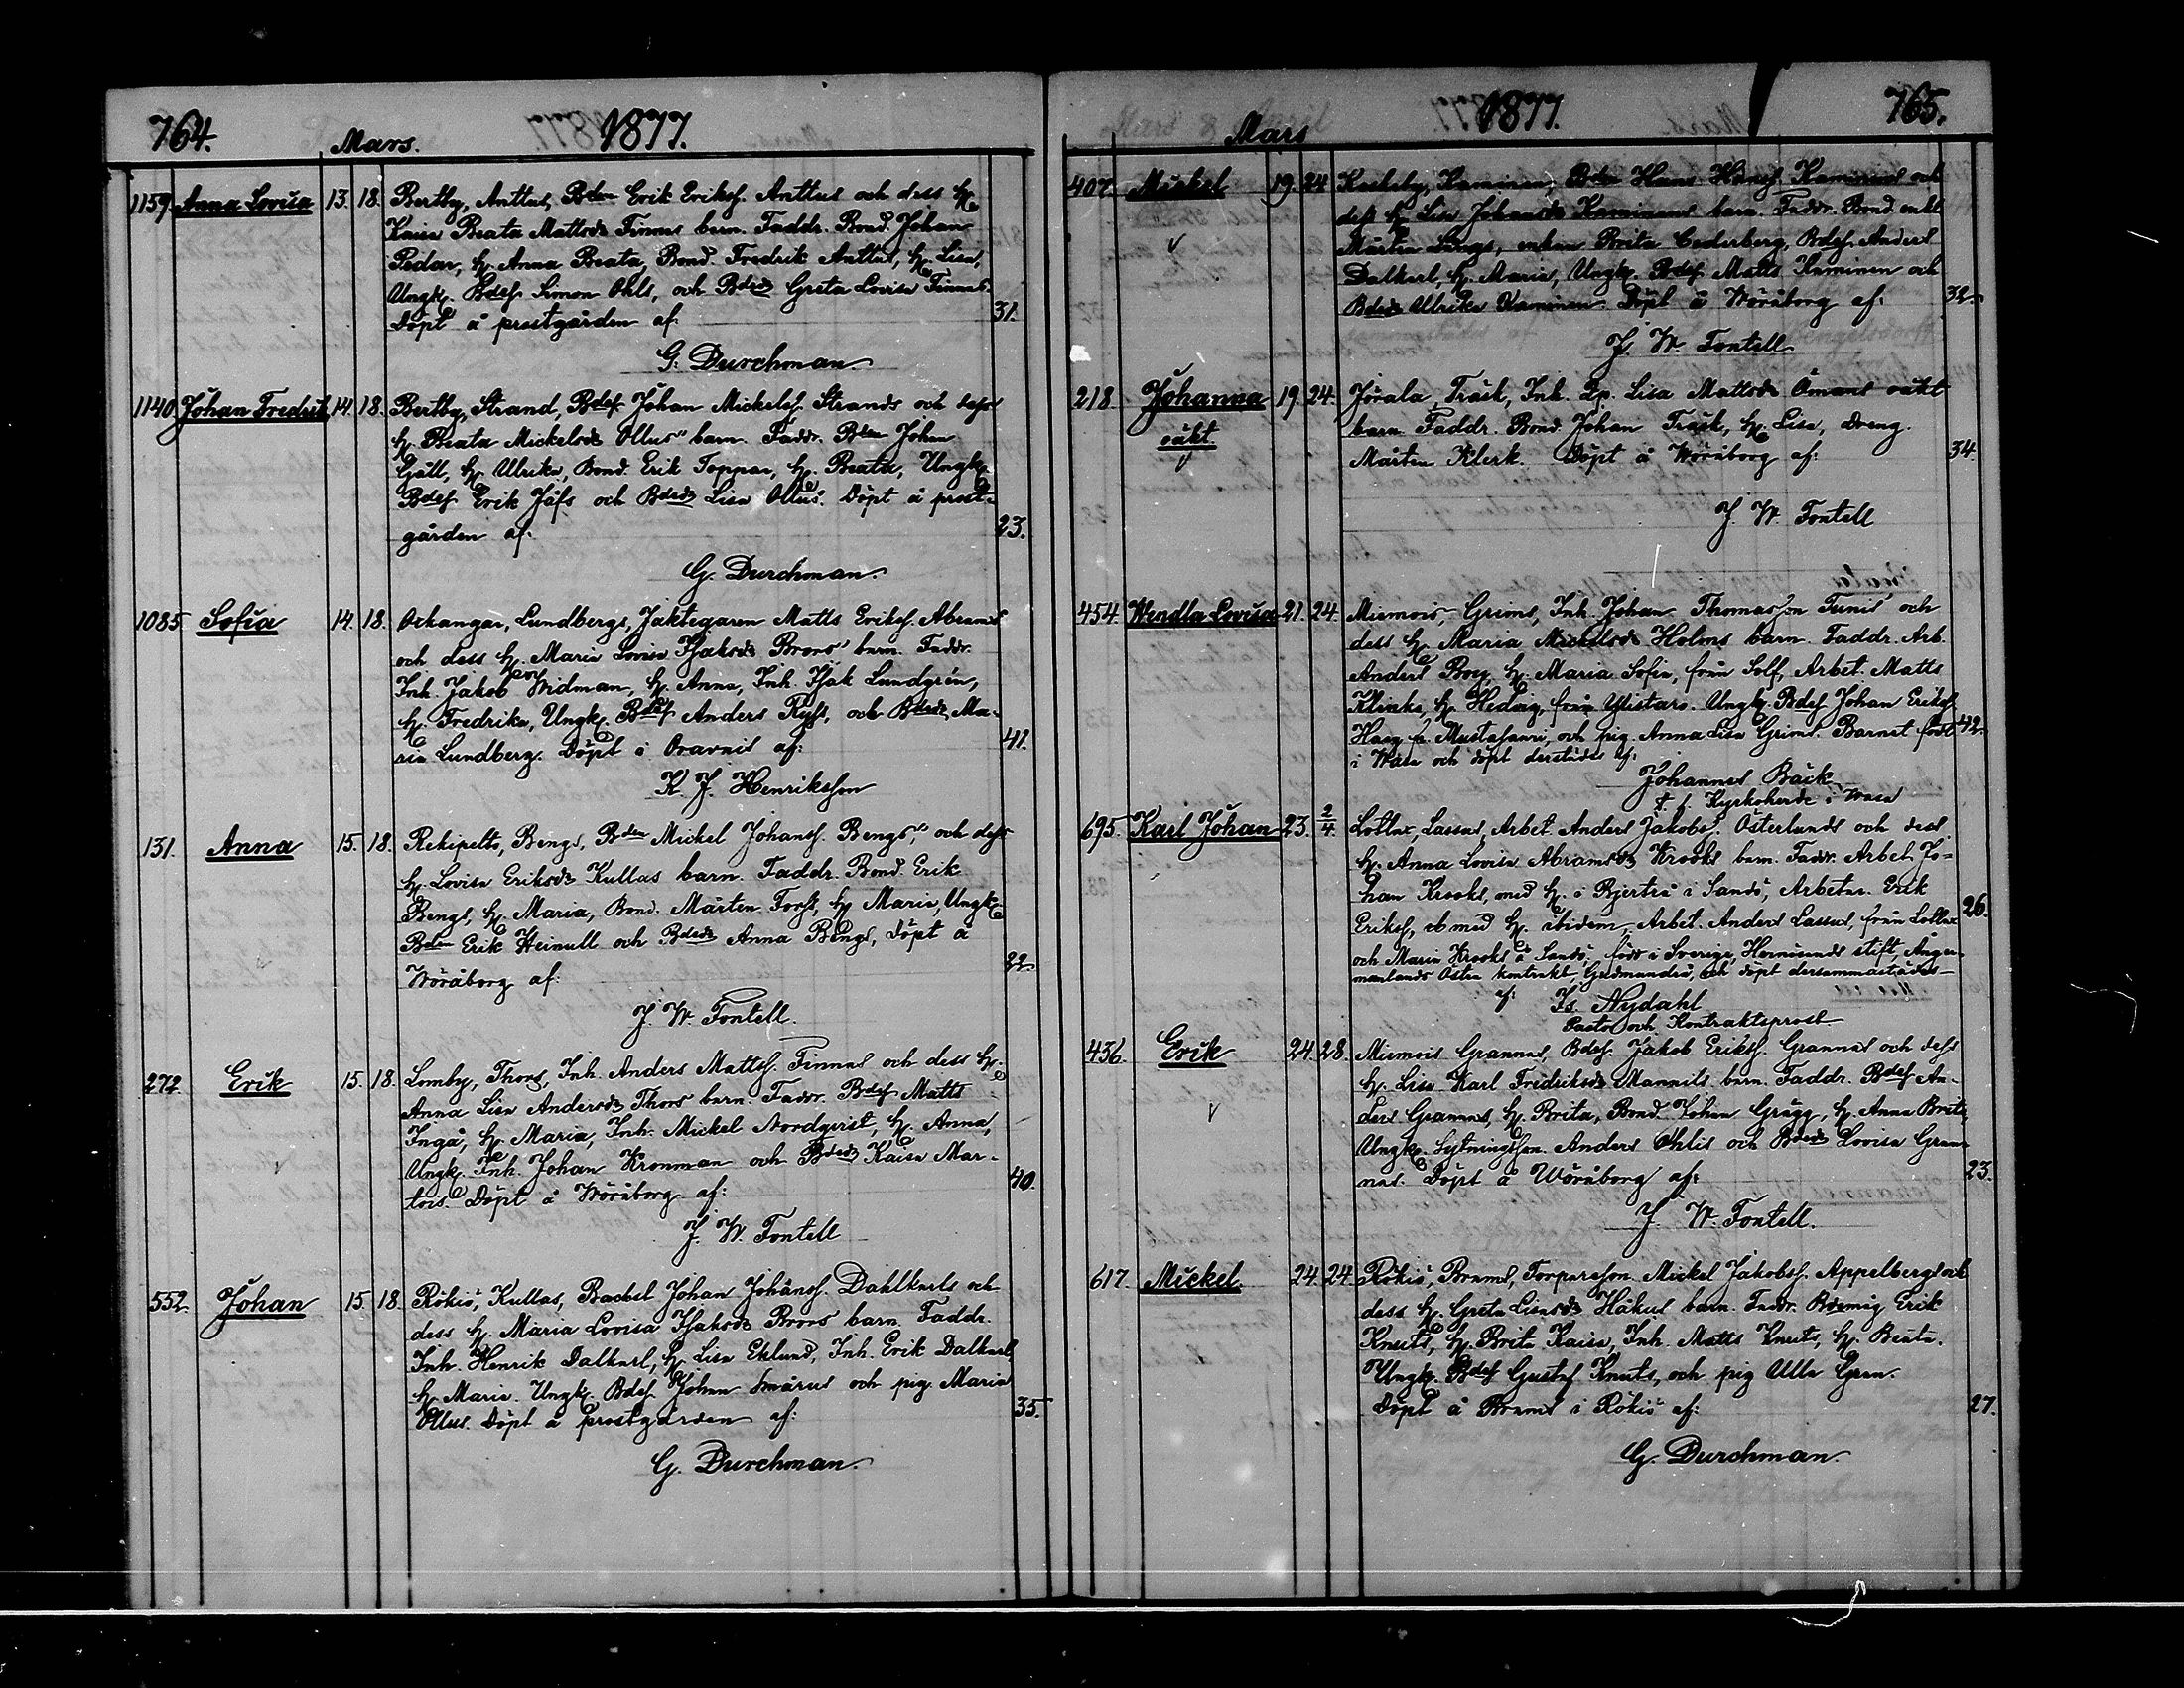 764. Mars. 1877.
1159. Anna Lovisa 13. 18. Bertby, Anttus, Bden Erik Eriks. Anttus och dess H.
Kaisa Beata Mattsdr Finnes barn. Faddr. Bond. Johan
Pedar, H. Anna Beata, Bond. Fredrik Anttus, H. Lisa,
Ungk. Bdes. Simon Ohls, och Bdesdr Greta Lovisa Finnas.
Döpt å prostgården af: 31.
G. Durchman.
1140 Johan Fredrik 14. 18. Bertby, Strand, Bdes. Johan Mickels. Strands och dess
H. Beata Mickelsdr Ollus" barn. Faddr. Bden Johan
Gall, H. Ulrika, Bond. Erik Toppar, H. Beata, Ungk.
Bdes. Erik Jåfs och Bdesdr Lisa Ollus. Döpt å prost-
gården af: 23.
G. Durchman.
1085 Sofia 14. 18. Ockangar, Lundbergs, Jaktegaren Matts Eriks. Abrams
och dess H. Maria Lovisa Isaksdr Brors" barn. Faddr.
Inh. Jakob Widman, H. Anna, Inh. Isak Lundgrén,
H. Fredrika, Ungk. Bdes. Anders Ryss, och Bdesdr Ma-
ria Lundberg. Döpt i Oravais af: 41.
K. J. Henriksson
131. Anna 15. 18. Rekipelto, Bengs, Bden Mickel Johans. Bengs", och dess
H. Lovisa Eriksdr Kullas barn. Faddr. Bond. Erik
Bengs, H. Maria, Bond. Mårten Forss, H. Maria, Ungk.
Bden Erik Heinull och Bdesdr Anna Bengs, Döpt å
Wöråborg af: 22.
J. W. Fontell.
272. Erik 15. 18. Lomby, Thors, Inh. Anders Matts. Finnes och dess H.
Anna Lisa Andersdr Thors barn. Faddr. Bdes. Matts
Ingå, H. Maria, Inh. Mickel Nordqvist, H. Anna,
Ungk. Inh. Johan Kronman och Bdesdr Kaisa Mar-
tois. Döpt å Wöråborg af: 40.
J. W. Fontell
552. Johan 15. 18. Rökiö, Kullas, Johan Johans. Dahlkarls och
dess H. Maria Lovisa Isaksdr Brors barn. Faddr.
Inh. Henrik Dalkarl, H. Lisa Eklund, Inh. Erik Dalkarl,
H. Maria. Ungk. Bdes. Johan Smärus och pig. Maria
Ollus. Döpt å prostgården af: 35.
G. Durchman.
Mars 1877. 765.
407. Mickel 19. 24 Keskeby, Kaminen, Bden Hans Hans. Kaminens och
dess H. Lisa Johansdr Kaminens barn. Faddr. Bond. enkl.
Mårten Längs, enkan Brita Cederberg, Bdes. Anders
Dalkarl, H. Maria, Ungk. Bdes. Matts Kaminen och
Bdesdr Ulrika Kaminen. Döpt å Wöråborg af: 32.
J. W. Fontell
218. Johanna 19. 24. Jörala, Träsk, Inh. Qp. Lisa Mattsdr Ömans oäkt
oäkt barn. Faddr. Bond. Johan Träsk, H. Lisa, Dreng.
Mårten Klerk. Döpt å Wöråborg af: 34.
J. W. Fontell
454. Wendla Lovisa 21. 24. Miemois, Grims, Inh. Johan Thomasson Tunis och
dess H. Maria Mickelsdr Holms barn. Faddr. Arb.
Anders Boy, H. Maria Sofia, från Solf, Arbet. Matts
Klinka, H. Hedvig, från Ylistaro. Ungk. Bdes. Johan Eriks.
Haeg fr. Mustasaari, och pig. Anna Lisa Grims. Barnet född 42.
i Wasa och döpt derstädes af:
Johannes Bäck
t. f. Kyrkoherde i Wasa
695. Karl Johan 23. 2/4. Lotlax, Lassus, Arbet. Anders Jakobs. Österlunds och dess
H. Anna Lovisa Abramsdr Krooks barn. Faddr. Arbet. Jo-
han Krooks, med H. i Bjertrå i Sandö, Arbetar. Erik
Eriks., med H. ibidem, Arbet. Anders Lassus, från Lotlax 26.
och Maria Krooks å Sandö; född i Sverige, Hernösands stift, Anger-
manlands Östra kontrakt, Gudmundrå, och döpt dersammastädes
af: Is. Nydahl
Pastor och Kontraktsprost
436. Erik 24. 28. Miemois Grannas, Bdes. Jakob Eriks. Grannas och dess
H. Lisa Karl Fredriksdr Mannils barn. Faddr. Bdes. An-
ders Grannas, H. Brita, Bond. Johan Grägg, H. Anna Brita,
Ungk. Anders Ohlis och Bdesdr Lovisa Gran-
nas. Döpt å Wöråborg af: 23.
J. W. Fontell.
617. Mickel 24. 24. Rökiö, Brams, Torpareson Mickel Jakobs. Appelbergs och
dess H. Greta Håkus barn. Faddr. Erik
Knuts, H. Brita Kaisa, Inh. Matts Knuts, H. Beata.
Ungk. Bdes. Gustaf Knuts, och pig Ulla Gran.
Döpt å Brams i Rökiö af: 27.
G. Durchman.